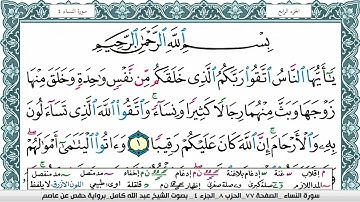 الجزء الرابع سورة النساء ٤
بِسْمِ ٱللَّهِ ٱلرَّحْمَٰنِ ٱلرَّحِيمِ
يَٰٓأَيُّهَا ٱلنَّاسُ ٱتَّقُوا۟ رَبَّكُمُ ٱلَّذِى خَلَقَكُم مِّن نَّفْسٍ وَٰحِدَةٍ وَخَلَقَ مِنْهَا
زَوْجَهَا وَبَثَّ مِنْهُمَا رِجَالًا كَثِيرًا وَنِسَآءً ۚ وَٱتَّقُوا۟ ٱللَّهَ ٱلَّذِى تَسَآءَلُونَ
بِهِۦ وَٱلْأَرْحَامَ ۚ إِنَّ ٱللَّهَ كَانَ عَلَيْكُمْ رَقِيبًا ١ وَءَاتُوا۟ ٱلْيَتَٰمَىٰٓ أَمْوَٰلَهُمْ ۖ
سورة النساء . الصفحة ٧٧ الحزب ٨ الجزء ٤ . بصوت الشيخ عبد الله كامل . برواية حفص عن عاصم